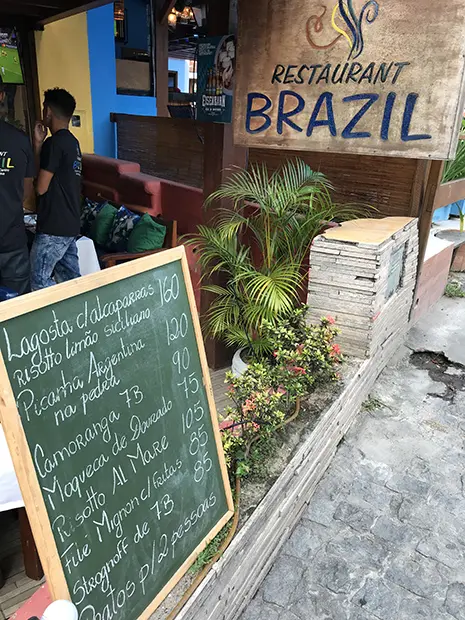 RESTAURANT
BRAZIL
Lagosta c/alcaparras 160
Risotto limão siciliano
Picanha Argentina 120
na pedra 90
Camoranga 7B 75
Moqueca de Dourado 105
Risotto Al Mare 85
Filé Mignon c/ Fritas 85
Strognoff de 7B
Pratos p/ 2 pessoas